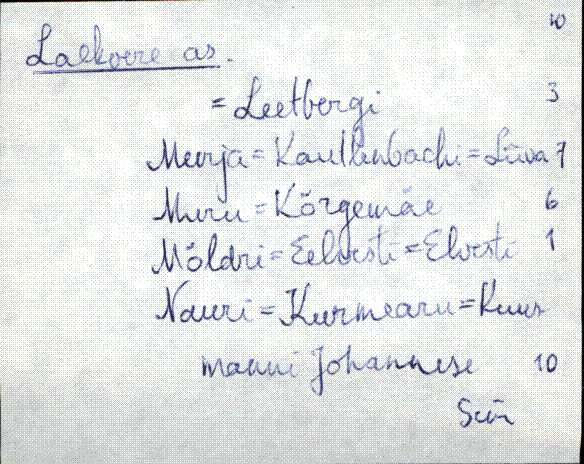 10
Laekvere as.
= Leetbergi 3
Meurja = Kaullenbachi = Liiva 7
Muru = Kõrgemäe 6
Möldri = Eelvesti = Elvesti 1
Nauri = Kurmearu = Kuus
manni Johannese 10